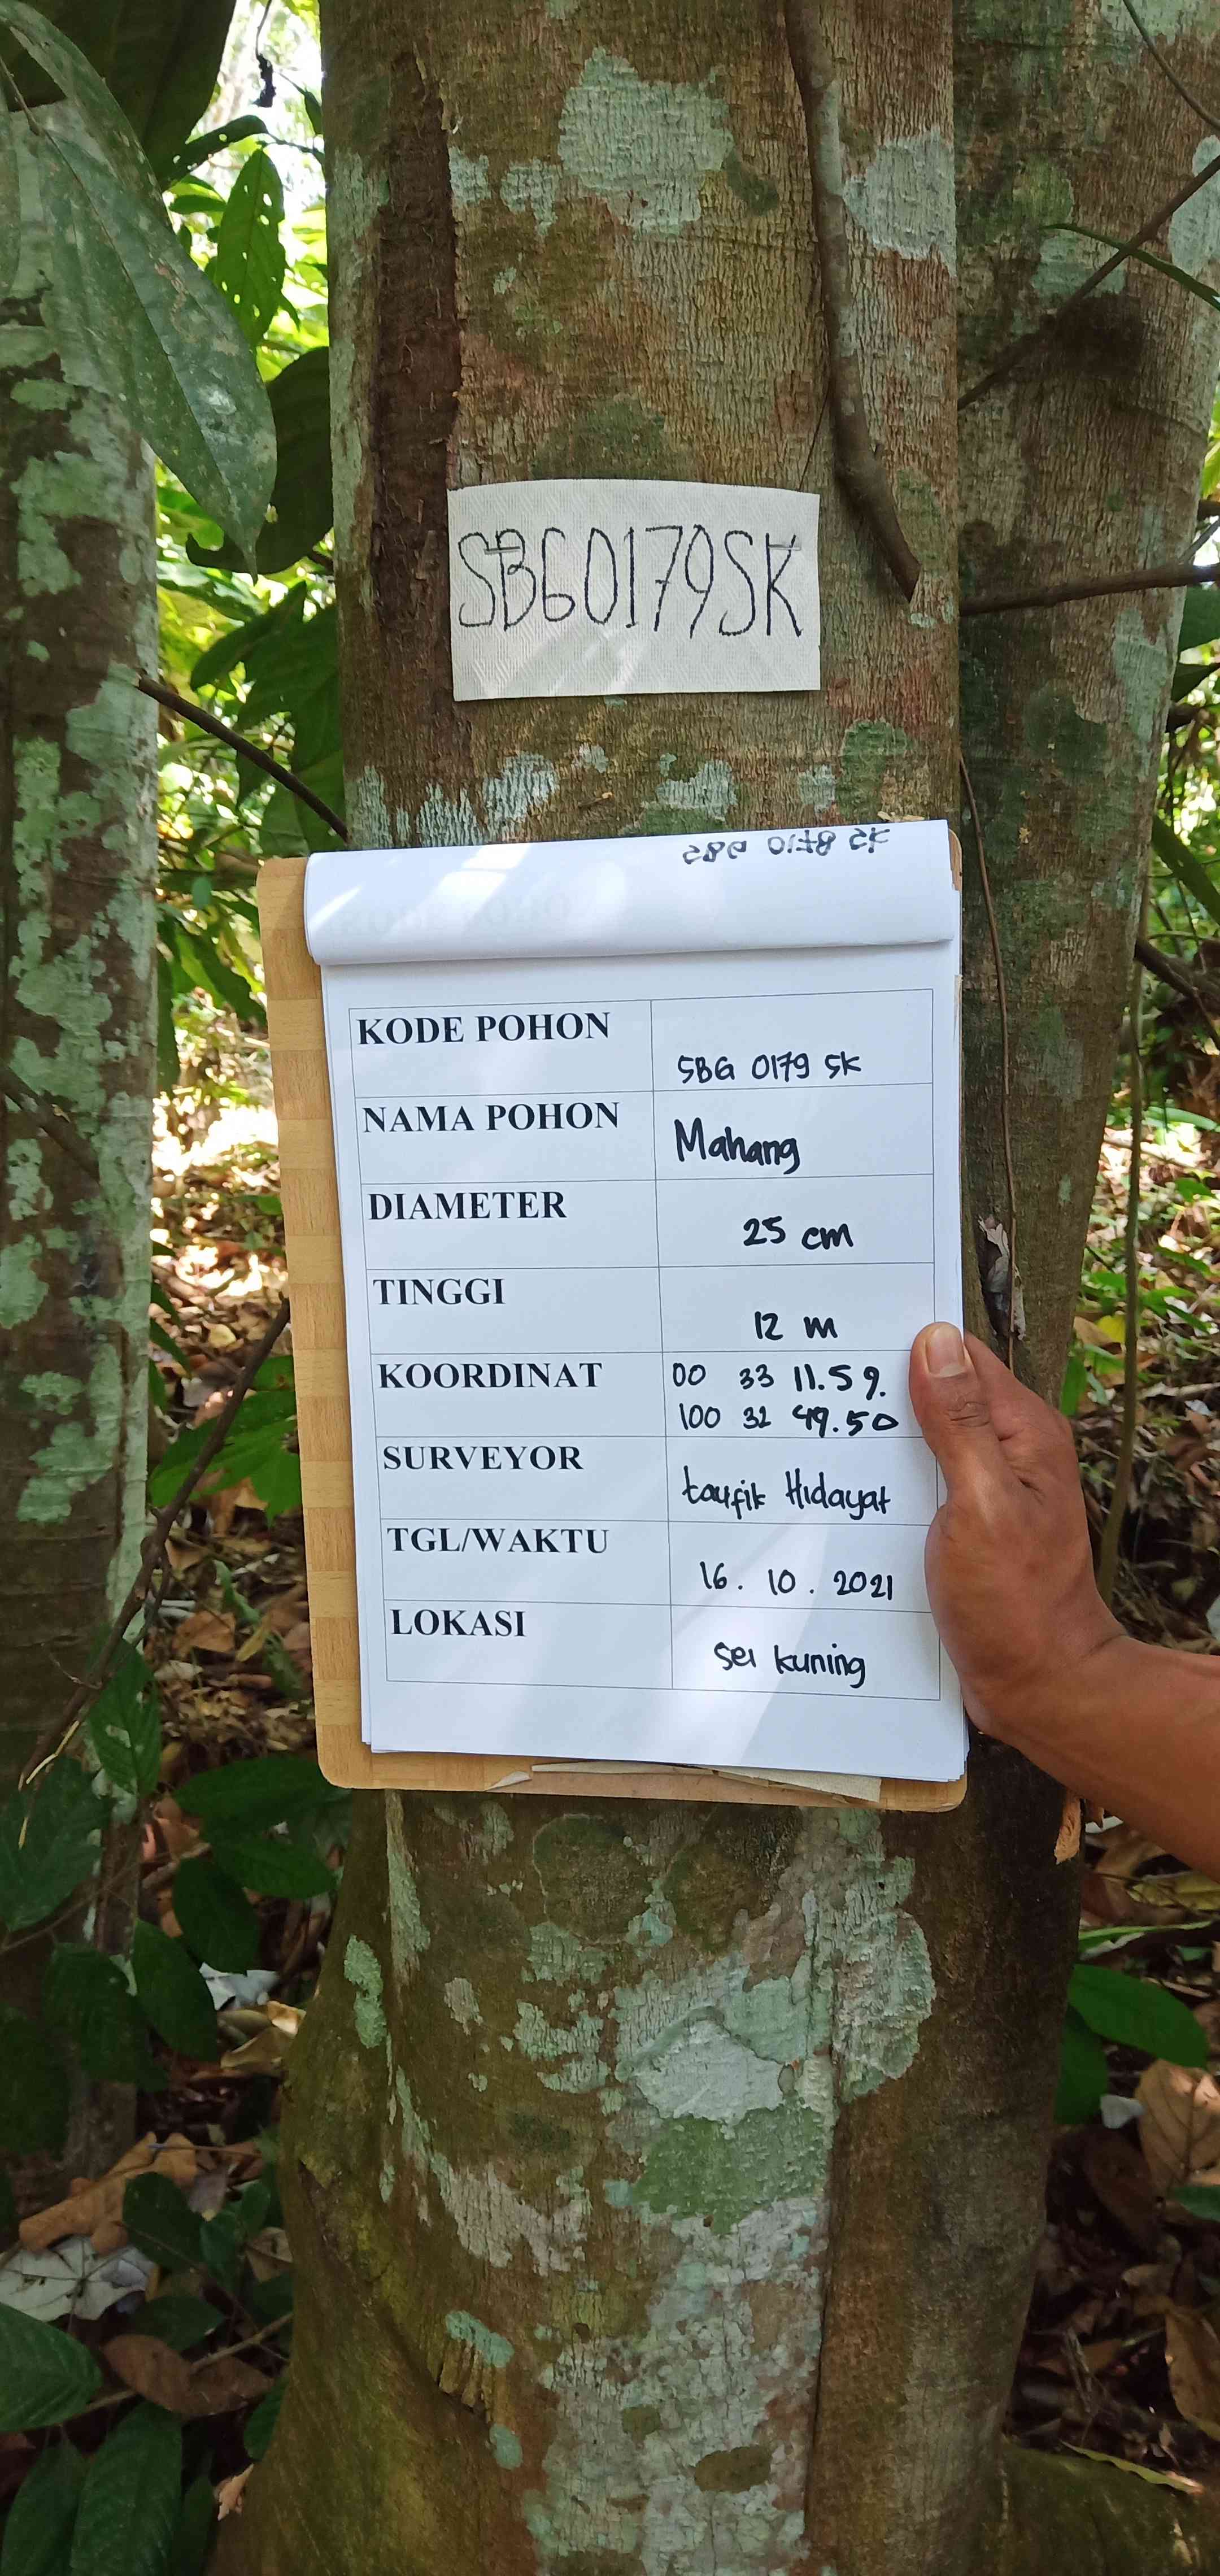 SBG0179SK
KODE POHON
SBG 0179 SK
NAMA POHON
Mahang
DIAMETER
25 cm
TINGGI
12 m
KOORDINAT
00 33 11.59.
100 32 49.50
SURVEYOR
taufik Hidayat
TGL/WAKTU
16. 10. 2021
LOKASI
Sei kuning